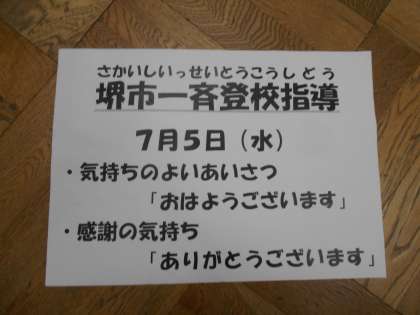 さかいしいっせいとうこうしどう
堺市一斉登校指導
7月5日（水）
・気持ちのよいあいさつ
「おはようございます」
・感謝の気持ち
「ありがとうございます」